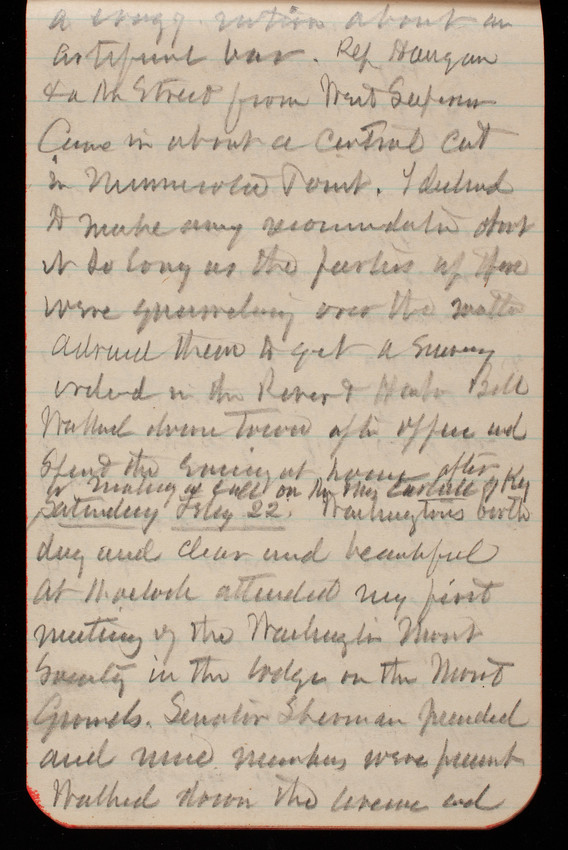 a crazy notion about an
artificial bar. Rep Haugen
& a Mr Street from West Superior
Came in about a central cut
in Minnesota Point. I declined
to make any recomendation about
it so long as the parties up there
were quarreling over the matter
advised them to get a Survey
ordered in the River & Harbor Bill
Walked down town after office and
Spend the Evening at home after
making a call on Mr & Mrs Carlisle of Ky
Saturday Feby 22. Washingtons birth
day and clear and beautiful
At 11 oclock attended my first
meeting of the Washington Mont
Society in the lodge on the Mont
Grounds. Senator Sherman presided
and nine members were present
Walked down the avenue and